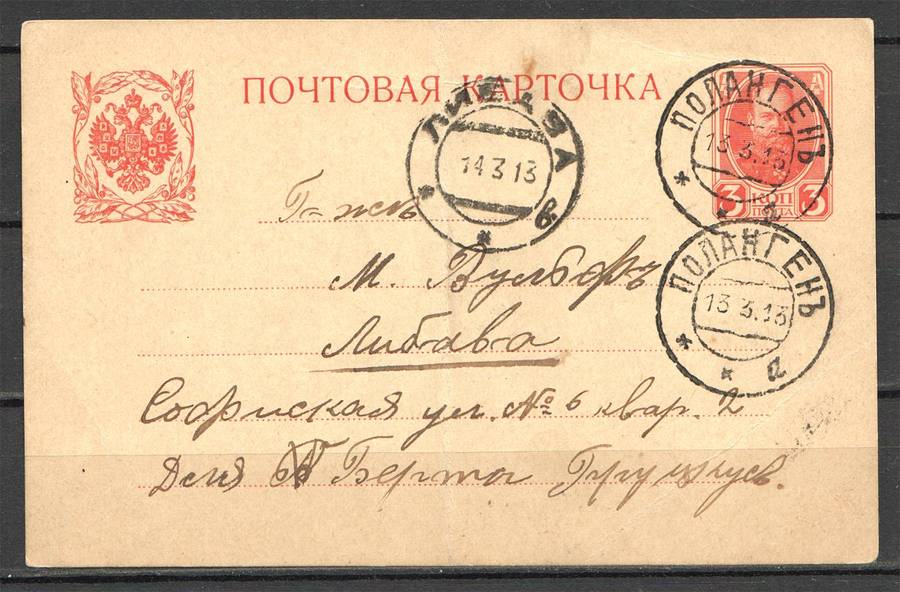 ПОЧТОВАЯ КАРТОЧКА
ПОЛАНГЕНЪ
13 3.13
а
3 КОП 3
ЛИБАВА
14 3 13
в
Г-жѣ
М. Вульфъ
Либава
Софиская ул. № 6 квар. 2
Для Берта
ПОЛАНГЕНЪ
13 3.13
а